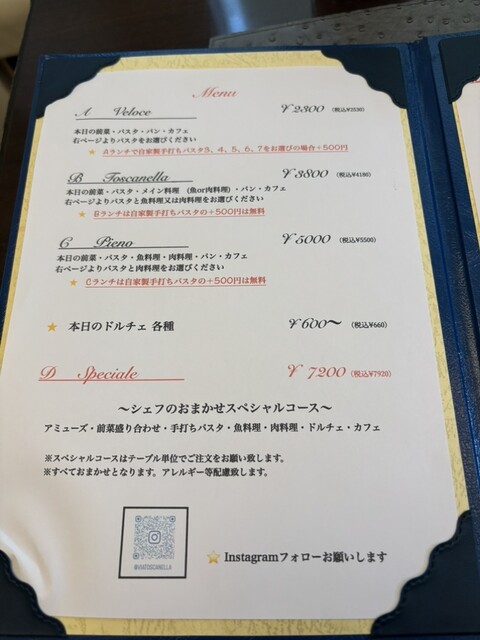 Menu
A Veloce ¥2300 (税込¥2530)
本日の前菜・パスタ・パン・カフェ
右ページよりパスタをお選びください
★ Aランチで自家製手打ちパスタ3、4、5、6、7をお選びの場合+500円
B Toscanella ¥3800 (税込¥4180)
本日の前菜・パスタ・メイン料理 (魚or肉料理)・パン・カフェ
右ページよりパスタと魚料理又は肉料理をお選びください
★ Bランチは自家製手打ちパスタの+500円は無料
C Pieno ¥5000 (税込¥5500)
本日の前菜・パスタ・魚料理・肉料理・パン・カフェ
右ページよりパスタと肉料理をお選びください
★ Cランチは自家製手打ちパスタの+500円は無料
★ 本日のドルチェ 各種 ¥600〜 (税込¥660)
D Speciale ¥7200 (税込¥7920)
〜シェフのおまかせスペシャルコース〜
アミューズ・前菜盛り合わせ・手打ちパスタ・魚料理・肉料理・ドルチェ・カフェ
※スペシャルコースはテーブル単位でご注文をお願い致します。
※すべておまかせとなります。アレルギー等配慮致します。
@VIATOSCANELLA
★ Instagramフォローお願いします